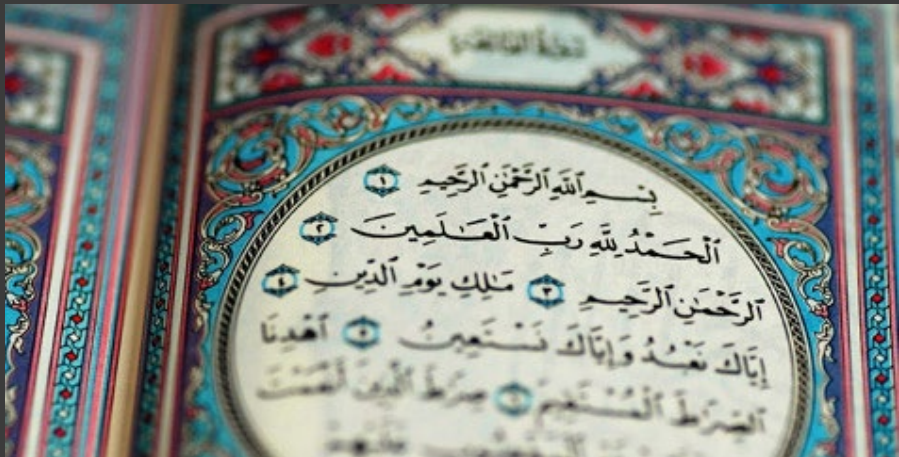 سورة الفاتحة
بِسْمِ ٱللَّهِ ٱلرَّحْمَٰنِ ٱلرَّحِيمِ ١
ٱلْحَمْدُ لِلَّهِ رَبِّ ٱلْعَٰلَمِينَ ٢
ٱلرَّحْمَٰنِ ٱلرَّحِيمِ ٣ مَٰلِكِ يَوْمِ ٱلدِّينِ ٤
إِيَّاكَ نَعْبُدُ وَإِيَّاكَ نَسْتَعِينُ ٥ ٱهْدِنَا
ٱلصِّرَٰطَ ٱلْمُسْتَقِيمَ ٦ صِرَٰطَ ٱلَّذِينَ أَنْعَمْتَ